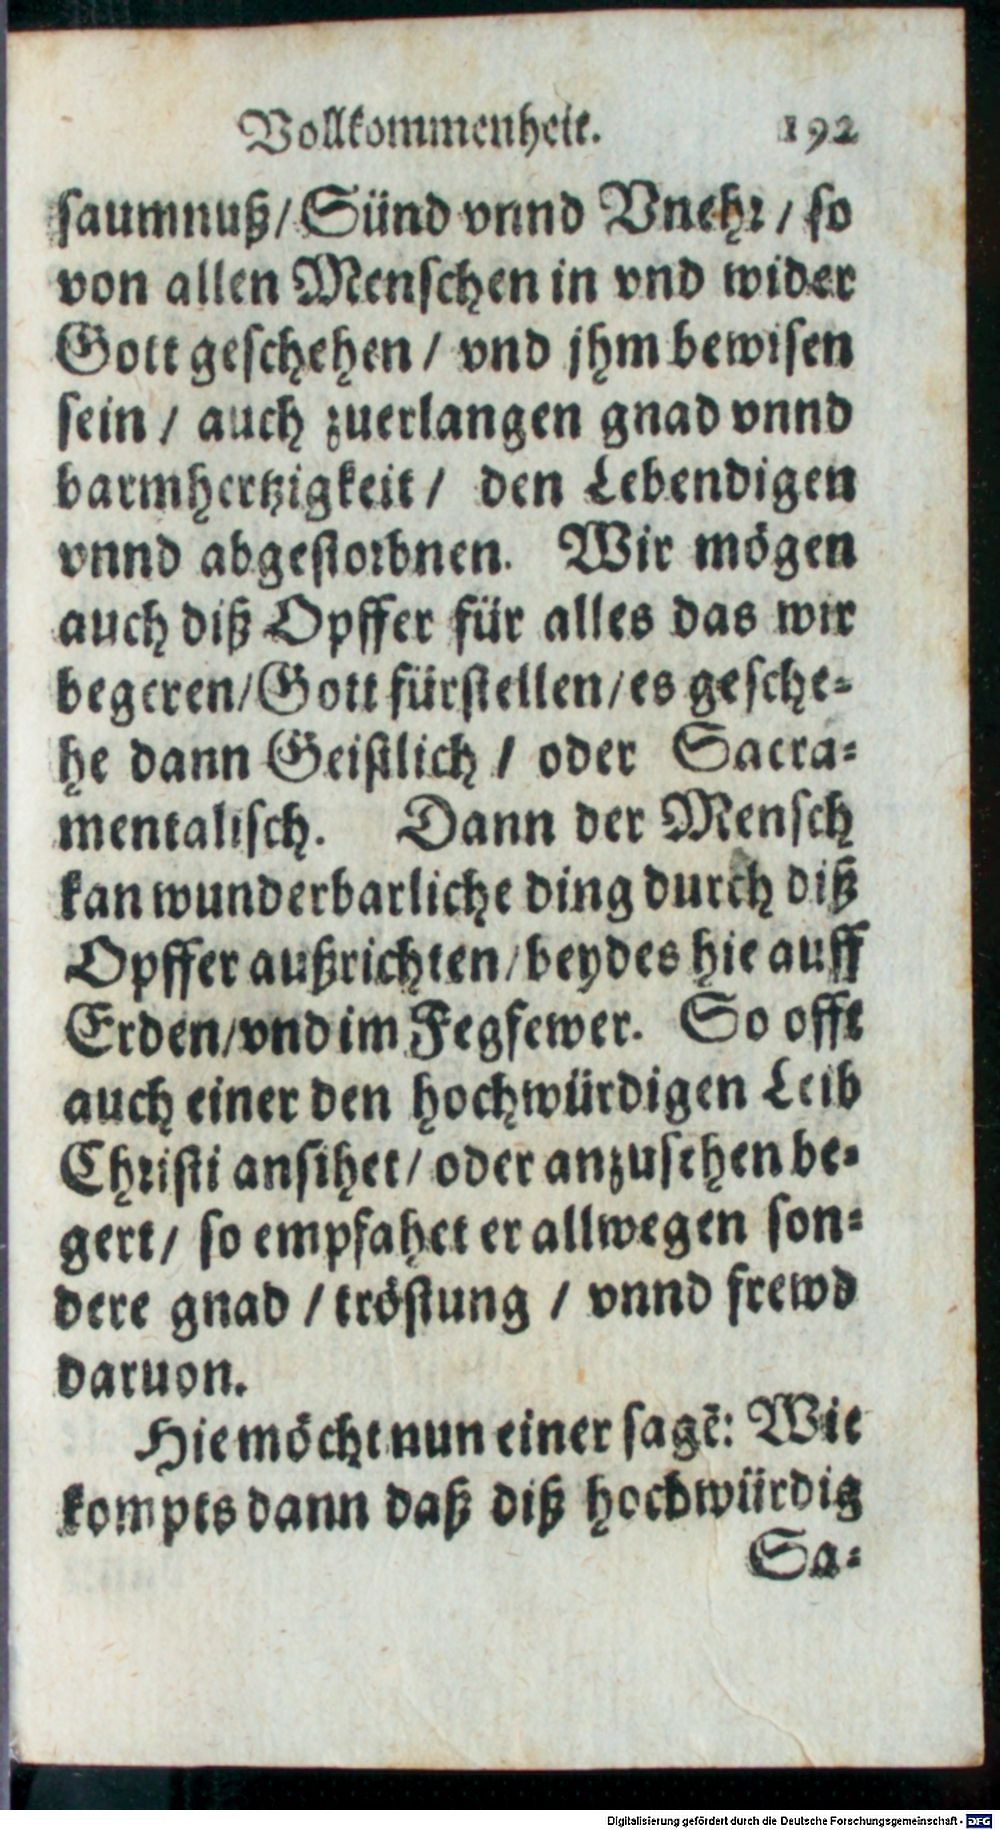 Vollkommenheit. 192
saumnuß/ Sünd vnnd Vnehr/ so
von allen Menschen in vnd wider
Gott geschehen/ vnd jhm bewisen
sein/ auch zuerlangen gnad vnnd
barmhertzigkeit/ den Lebendigen
vnnd abgestorbnen. Wir mögen
auch diß Opffer für alles das wir
begeren/ Gott fürstellen/ es gesche-
he dann Geistlich/ oder Sacra-
mentalisch. Dann der Mensch
kan wunderbarliche ding durch diß
Opffer außrichten/ beydes hie auff
Erden/ vnd im Fegfewer. So offt
auch einer den hochwürdigen Leib
Christi ansihet/ oder anzusehen be-
gert/ so empfahet er allwegen son-
dere gnad/ tröstung/ vnnd frewd
daruon.
Hie möcht nun einer sagē: Wie
kompts dann daß diß hochwürdig
Sa-
Digitalisierung gefördert durch die Deutsche Forschungsgemeinschaft - DFG